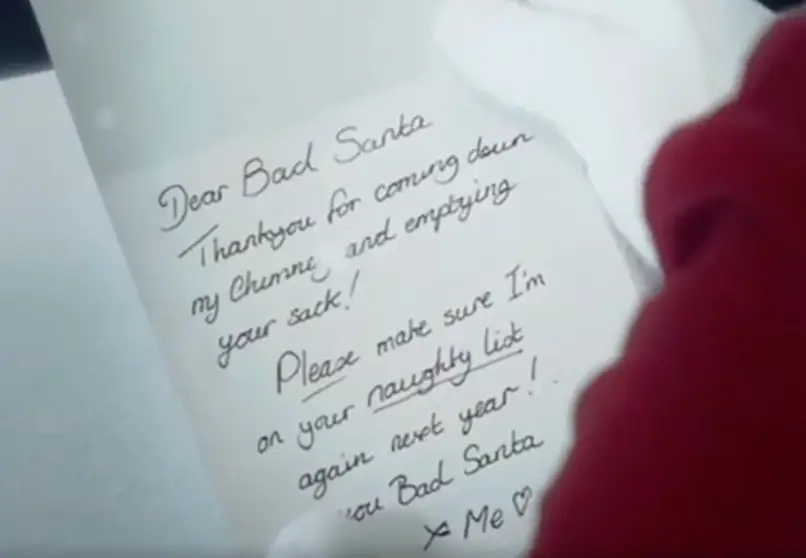 Dear Bad Santa
Thankyou for coming down
my Chimney and emptying
your sack!
Please make sure I'm
on your naughty list
again next year!
you Bad Santa
x Me ♡